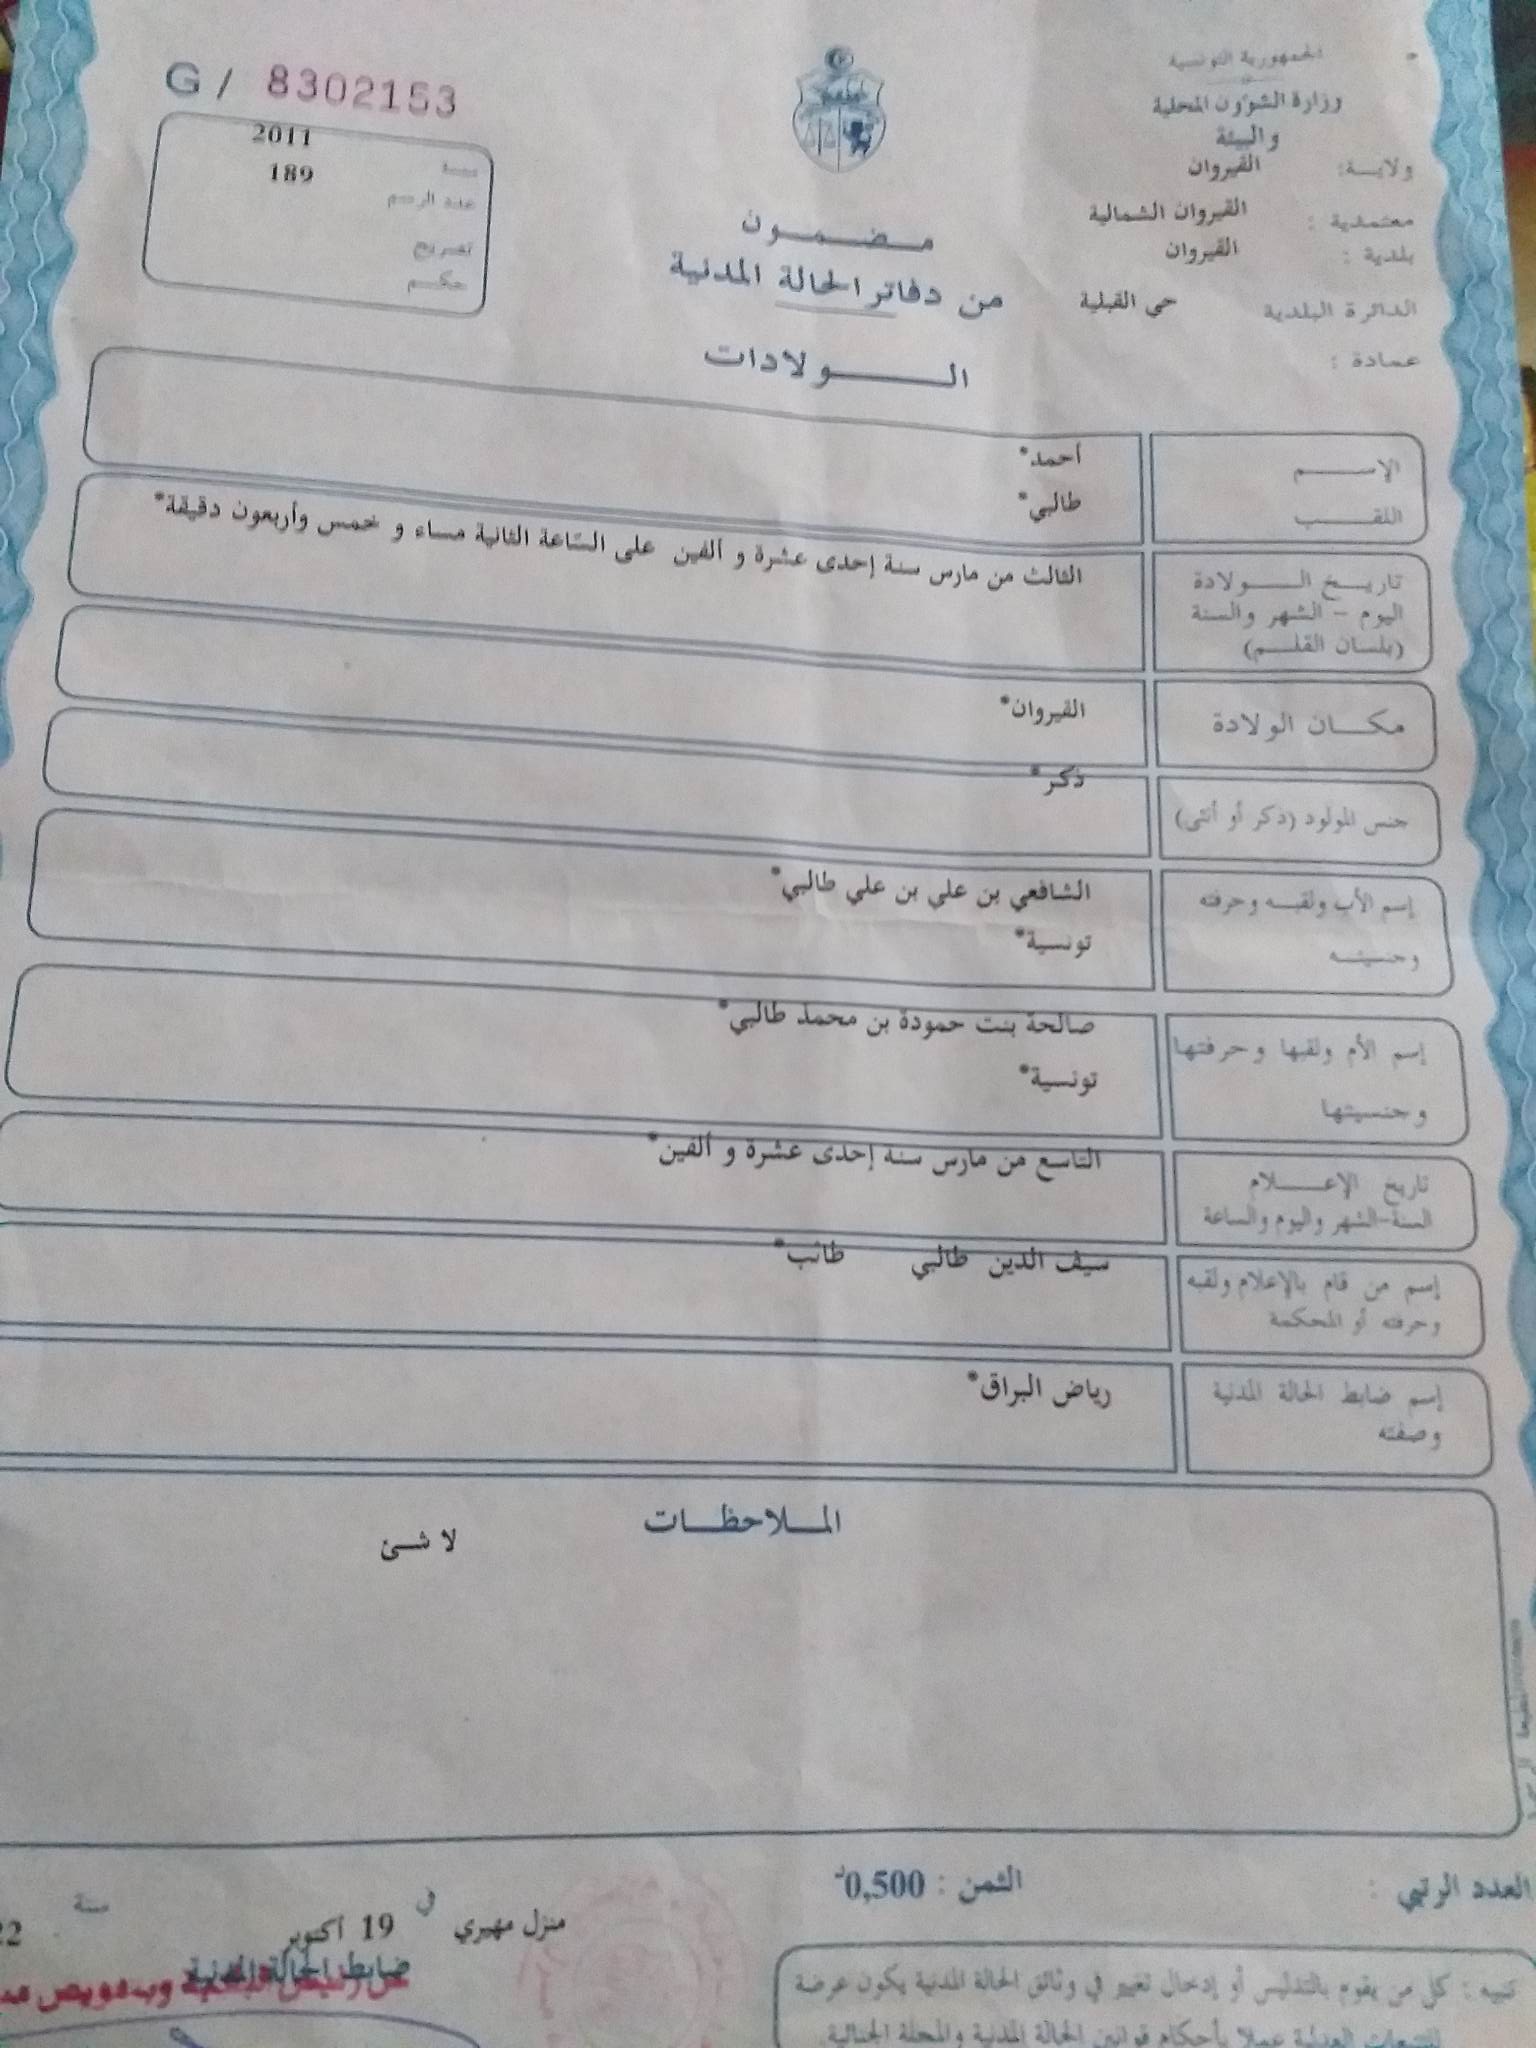 الجمهورية التونسية
وزارة الشؤون المحلية
والبيئة
ولاية: القيروان
معتمدية : القيروان الشمالية
بلدية : القيروان
الدائرة البلدية حي القبلية
عمادة :
مضمون
من دفاتر الحالة المدنية
الولادات
G / 8302153
سنة 2011
عدد الرسم 189
تصريح
حكم
الإسم أحمد*
اللقب طالبي*
تاريخ الولادة
اليوم - الشهر والسنة
(بلسان القلم)
الثالث من مارس سنة إحدى عشرة و ألفين على السّاعة الثانية مساء و خمس وأربعون دقيقة*
مكان الولادة القيروان*
جنس المولود (ذكر أو أنثى) ذكر*
إسم الأب ولقبه وحرفته الشافعي بن علي بن علي طالبي*
وجنسيته تونسية*
إسم الأم ولقبها وحرفتها صالحة بنت حمودة بن محمد طالبي*
وجنسيتها تونسية*
تاريخ الإعلام
السنة-الشهر واليوم والساعة
التاسع من مارس سنة إحدى عشرة و ألفين*
إسم من قام بالإعلام ولقبه
وحرفته أو المحكمة
سيف الدين طالبي طالب*
إسم ضابط الحالة المدنية
وصفته
رياض البراق*
الملاحظات
لا شئ
العدد الرتبي :
الثمن : 0,500د
منزل مهيري في 19 أكتوبر سنة 22
ضابط الحالة المدنية
تنبيه : كل من يقوم بالتدليس أو إدخال تغيير في وثائق الحالة المدنية يكون عرضة
للتتبعات العدلية عملا بأحكام قوانين الحالة المدنية والمجلة الجنائية.